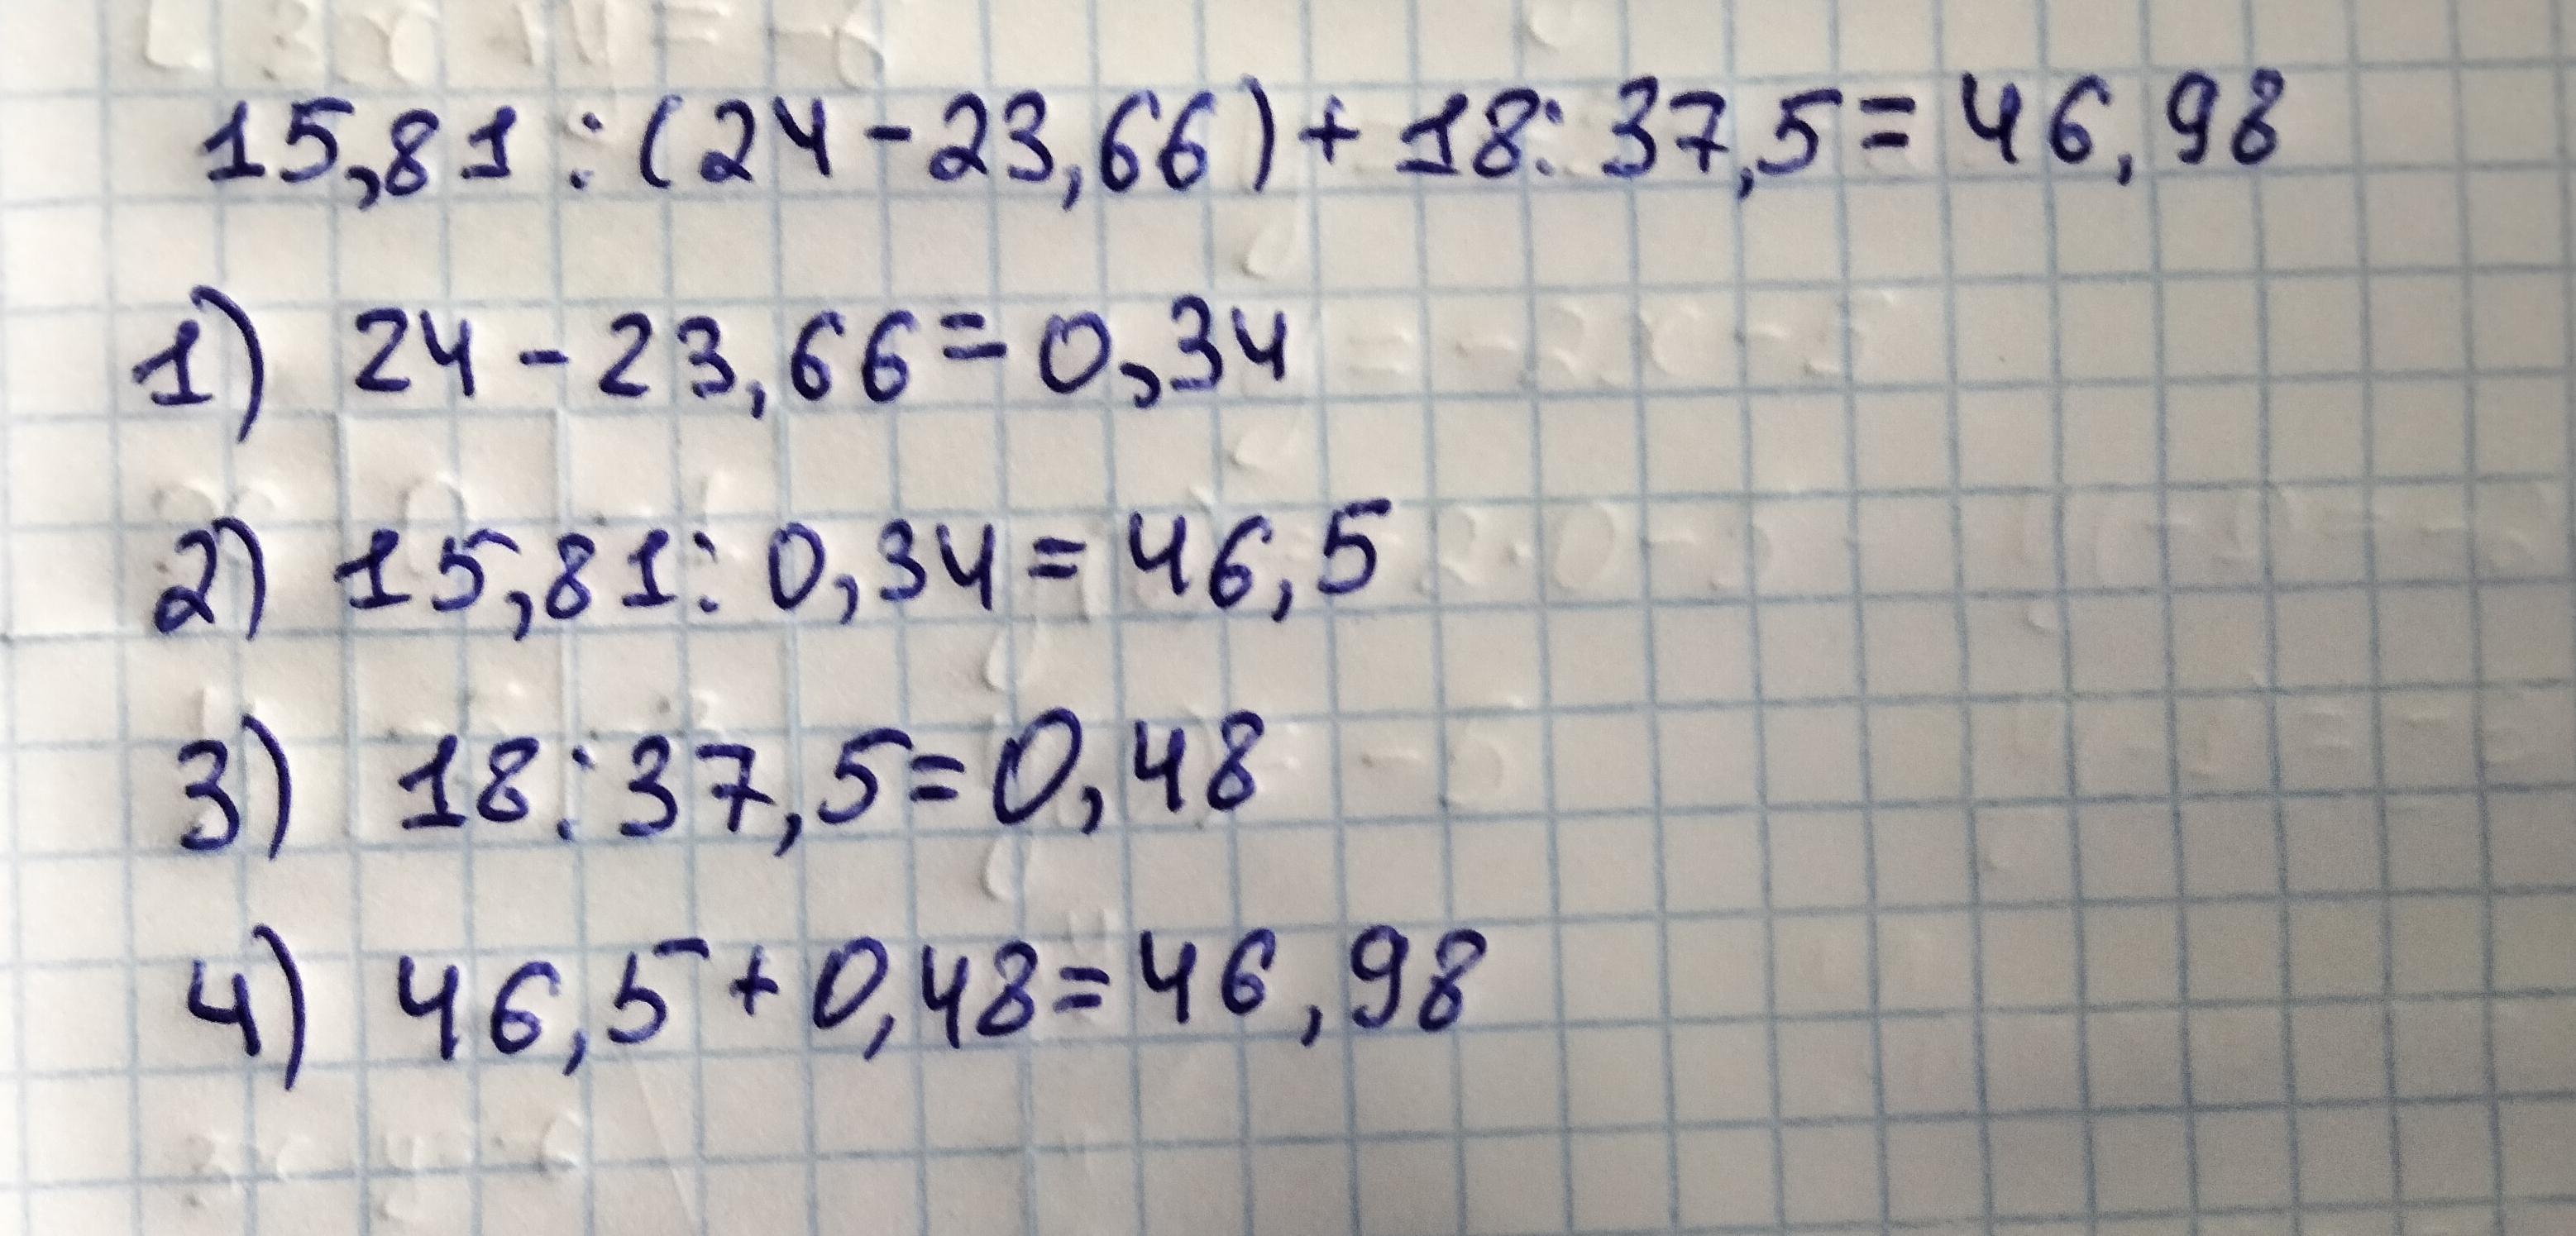 15,81 : (24 - 23,66) + 18 : 37,5 = 46,98
1) 24 - 23,66 = 0,34
2) 15,81 : 0,34 = 46,5
3) 18 : 37,5 = 0,48
4) 46,5 + 0,48 = 46,98